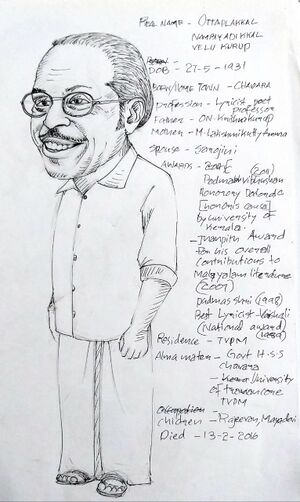 Real name - Ottaplakkal
Nambiyadikkal
Velu Kurup
DOB - 27-5-1931
Born/Home Town - Chavara
profession - Lyricist, poet
professor
Father - O.N. Krishnakurup
Mother - M. Lakshmikutty Amma
Spouse - Sarojini
Awards - (2011)
Padma Vibhushan
Honorary Doctorate
[honoris causa]
by university of
Kerala.
- Jnanpith Award
for his overall
contributions to
Malayalam literature
(2007)
padmasshri (1998)
Best Lyricist - Vaishali
(National award)
(1989)
Residence - TVPM
Alma mater - Govt H.S.S
Chavara
Kerala University
of Travancore
TVPM
Occupation
Children - Rajeevan, Mayadevi
Died - 13-2-2016